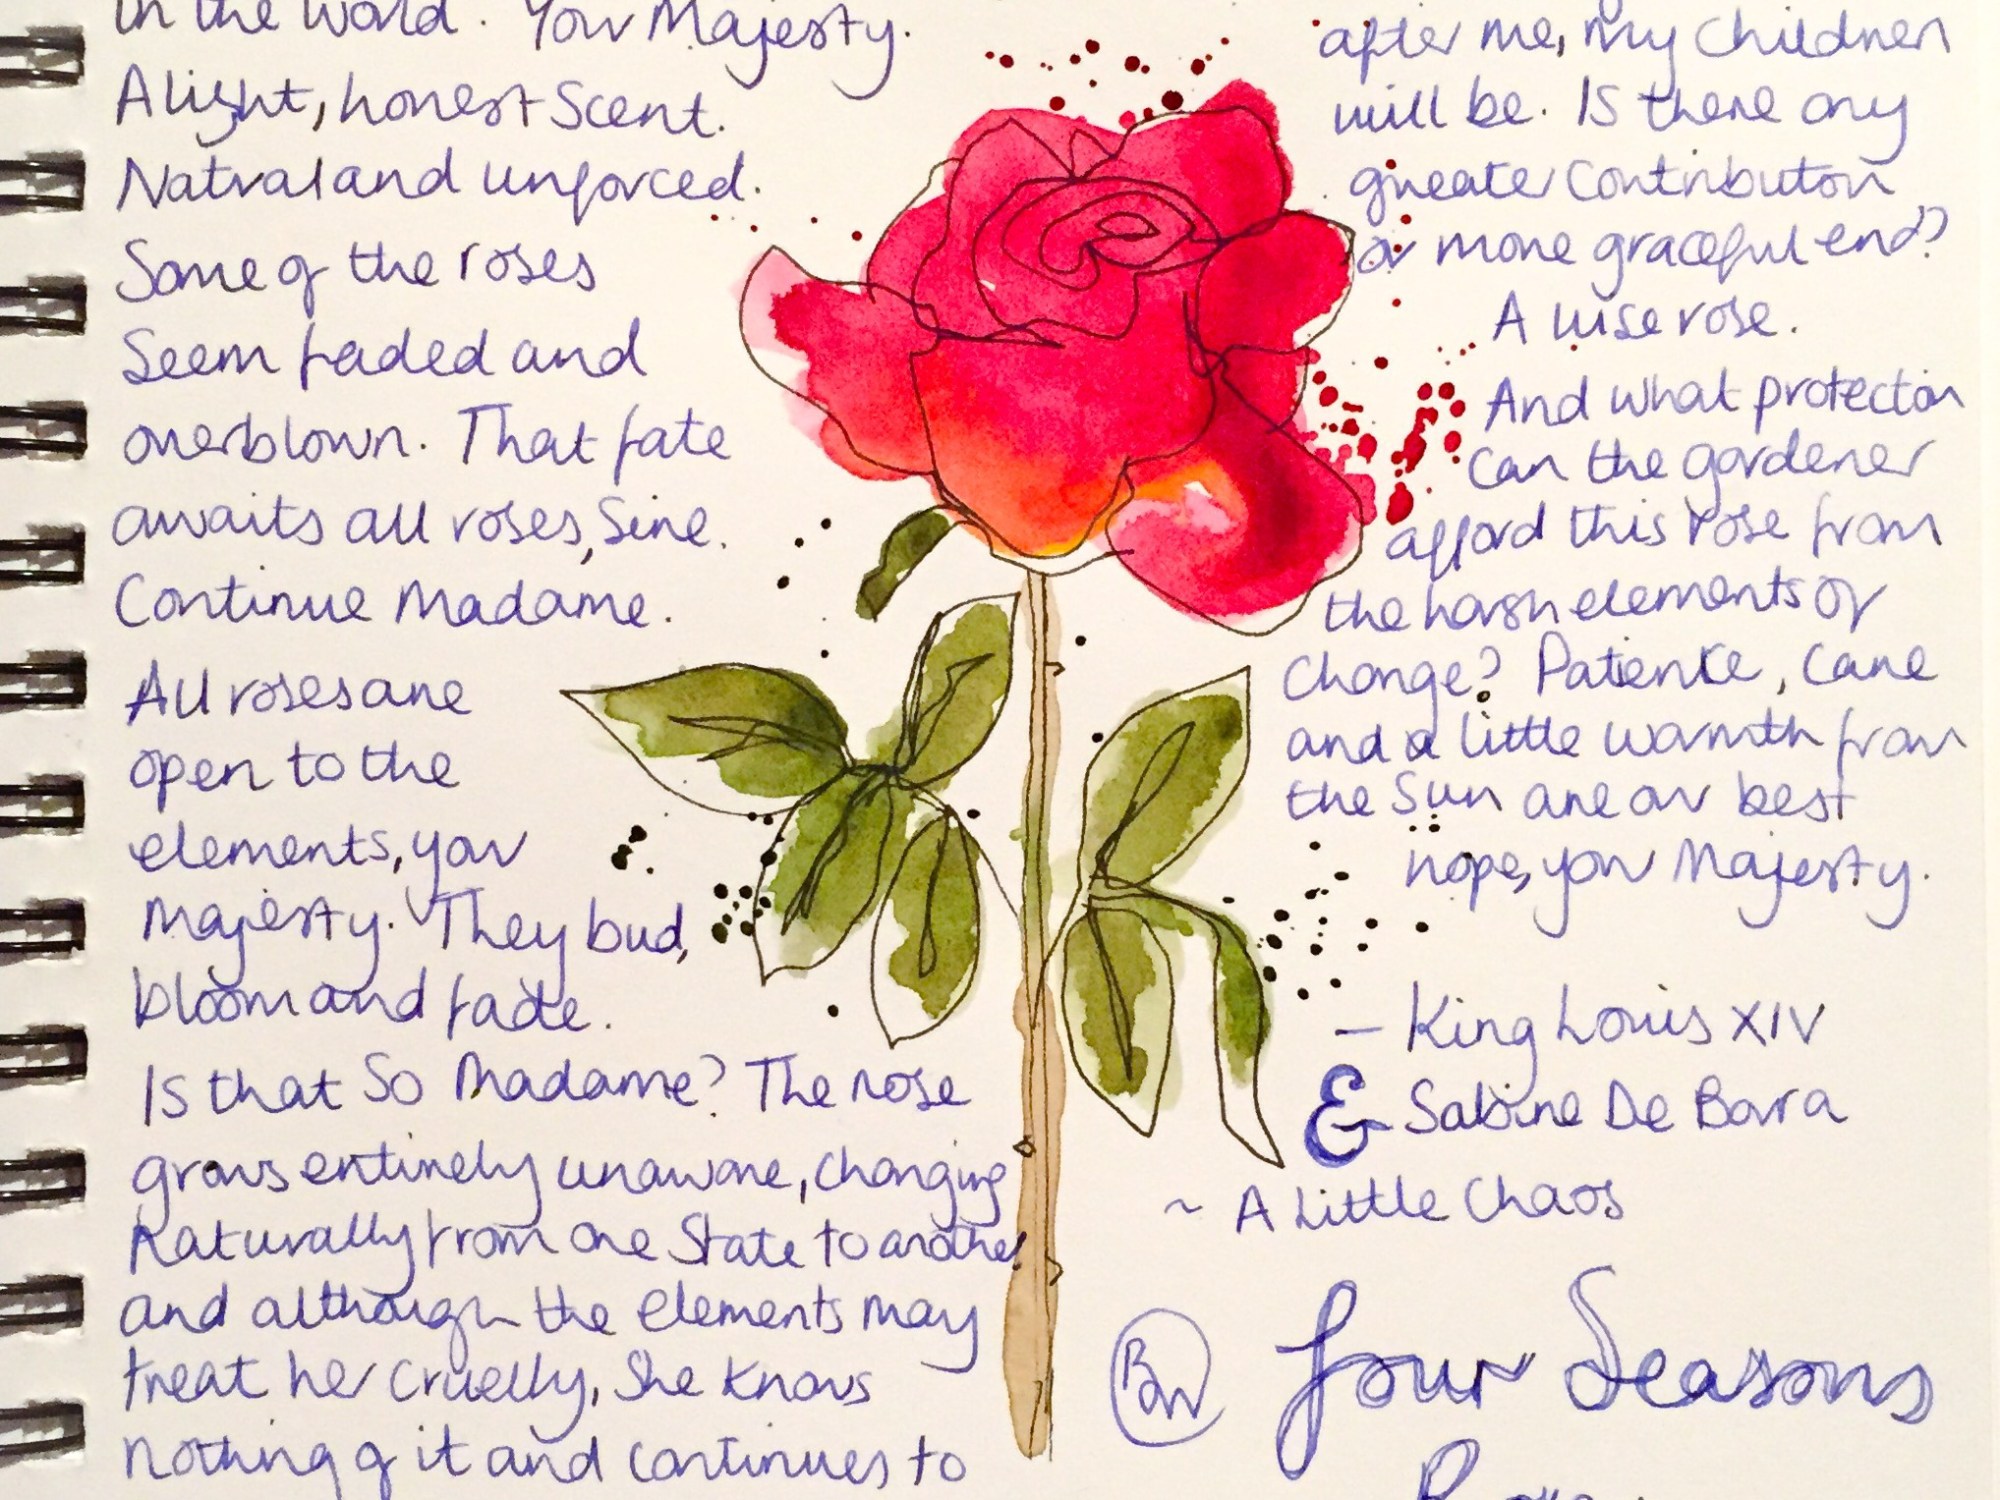 in the world. Your Majesty.
A light, honest Scent.
Natural and unforced.
Some of the roses
Seem faded and
overblown. That fate
awaits all roses, Sire.
Continue Madame.
All roses are
open to the
elements, your
Majesty. They bud,
bloom and fade.
Is that So Madame? The rose
grows entirely unaware, changing
naturally from one State to another
and although the elements may
treat her cruelly, She knows
nothing of it and continues to
after me, my children
will be. IS there any
greater Contribution
or more graceful end?
A wise rose.
And what protection
Can the gardener
afford this rose from
the harsh elements of
Change? Patience, Care
and a little warmth from
the Sun are our best
hope, your Majesty.
— King Louis XIV
& Sabine De Barra
~ A Little Chaos
Four Seasons